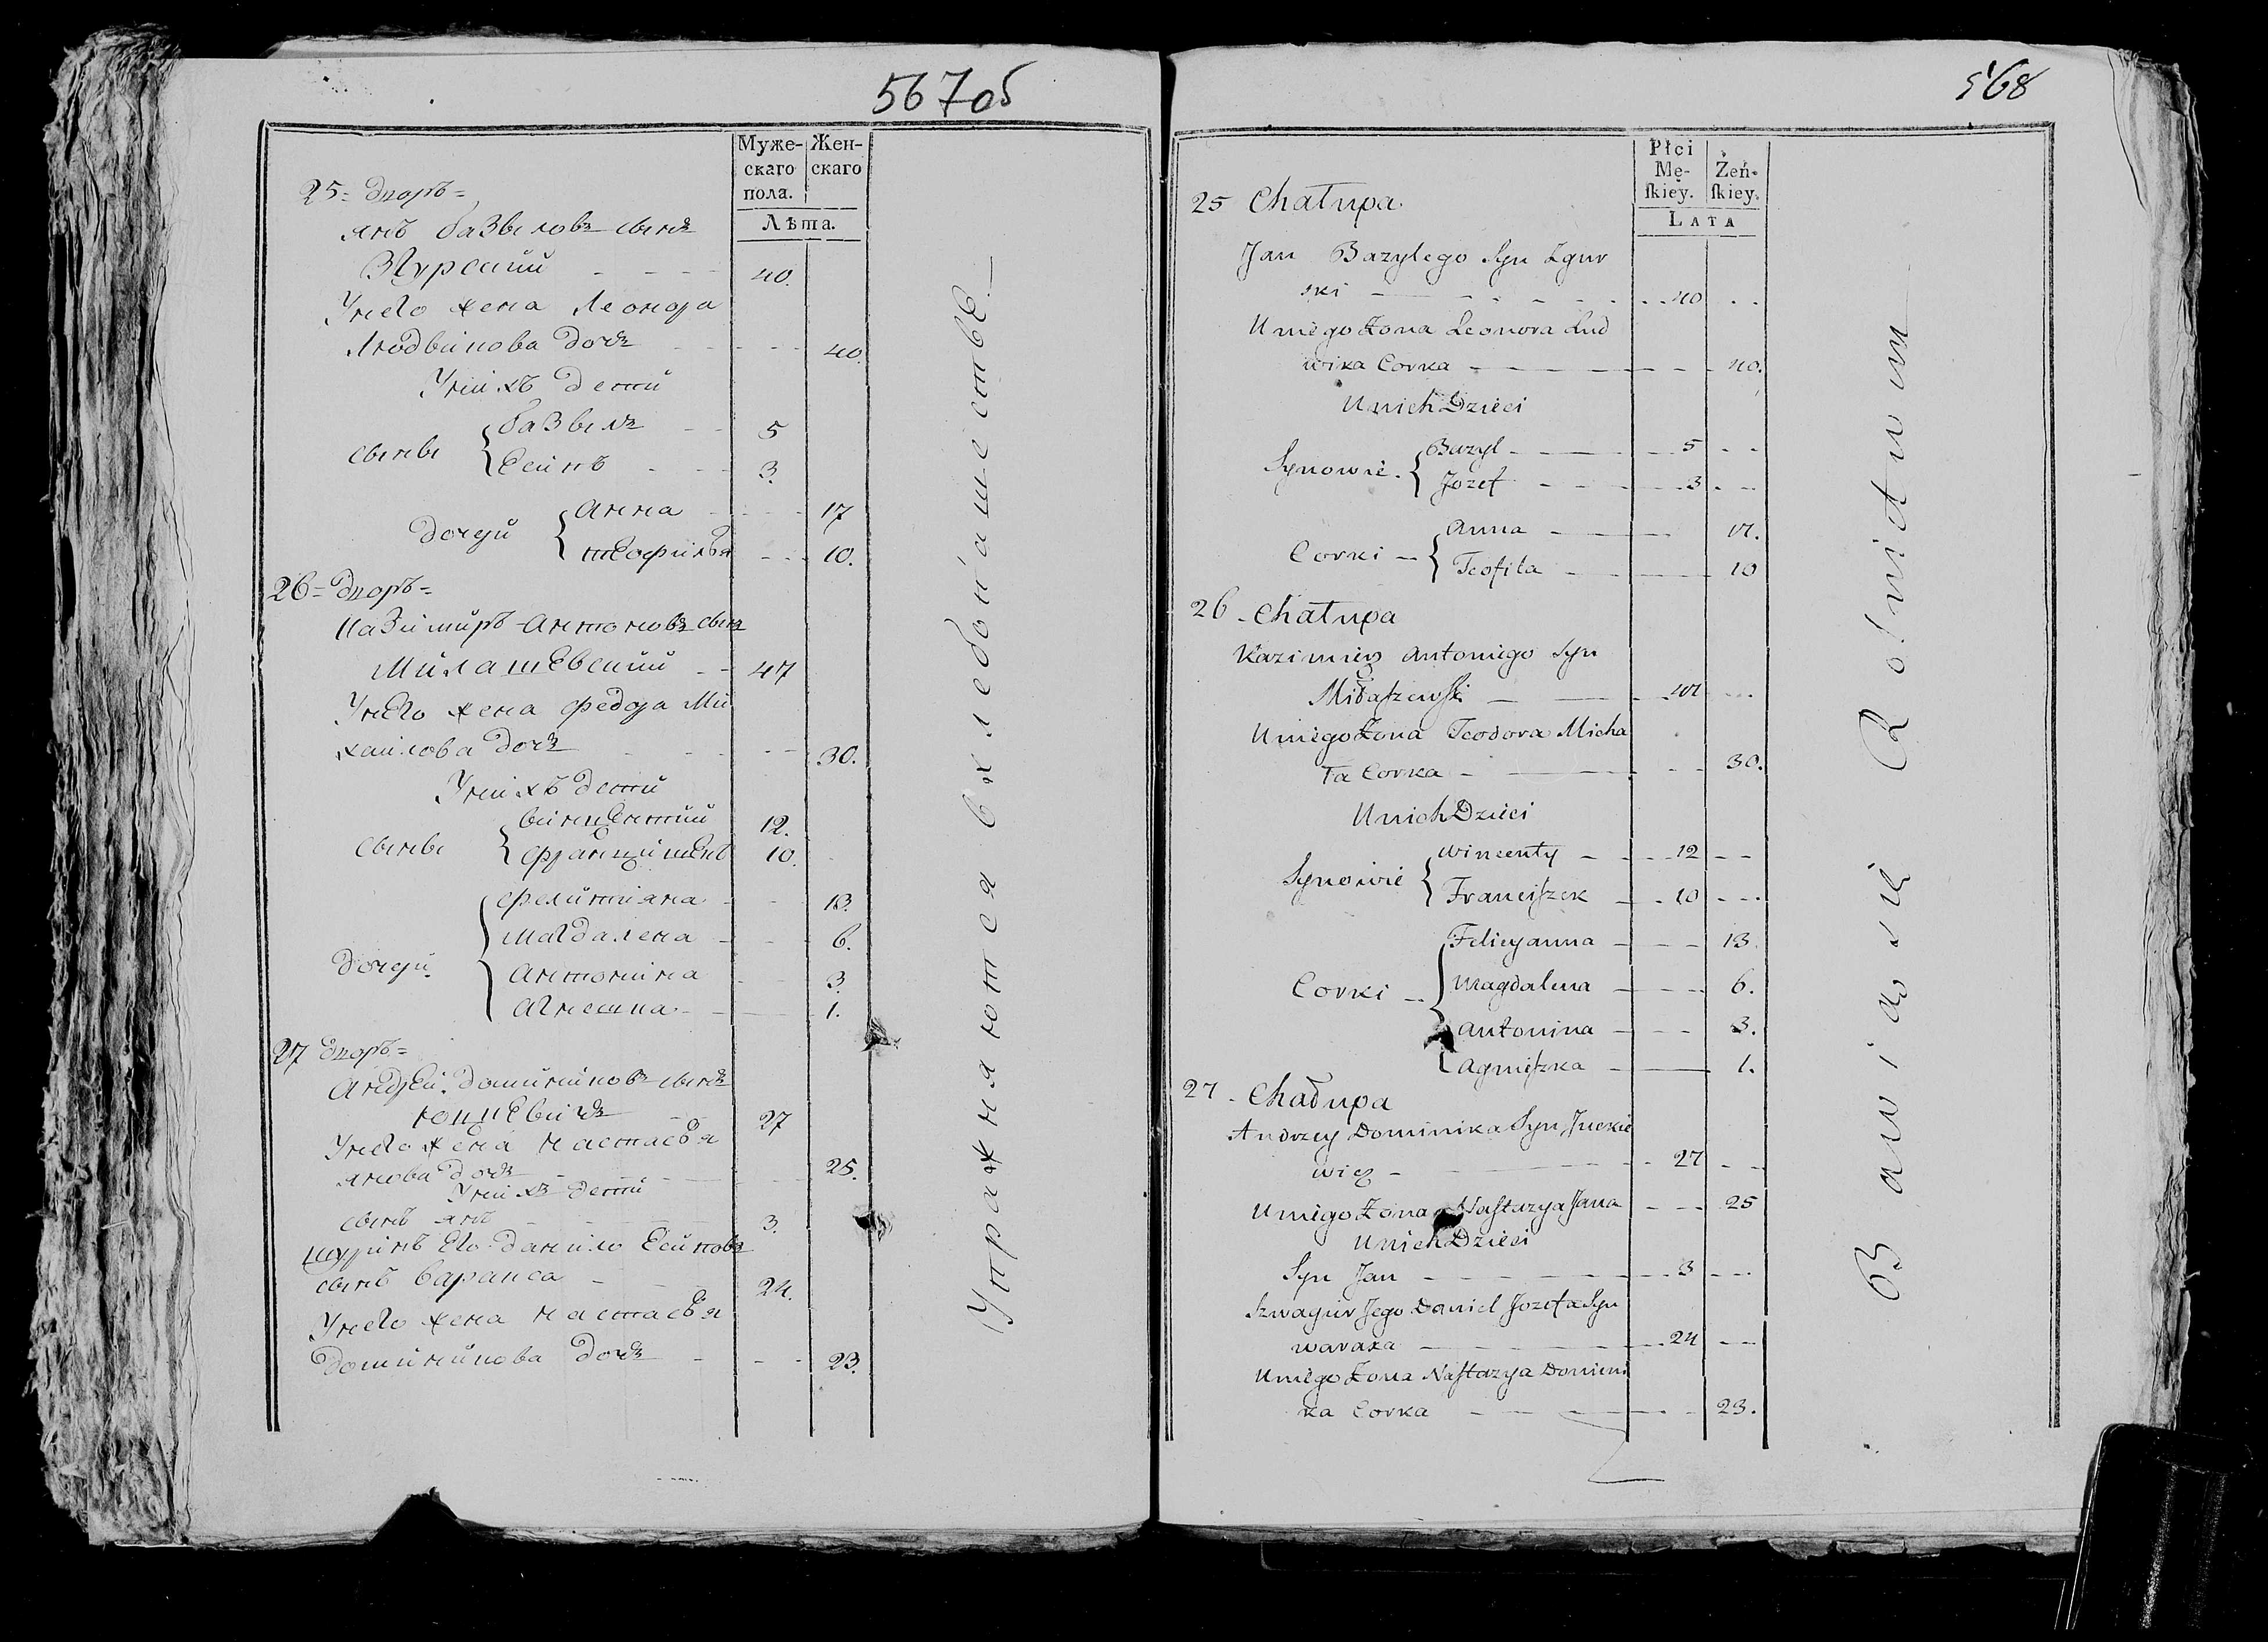 567об
Муже-
скаго
пола.
Жен-
скаго
Лѣта.
25 = Дворъ =
Янъ Базыловъ сынъ
Згурский 40.
У него жена Леонора
Людвикова дочъ 40.
У нихъ дети
сынвы
Базыль 5
Есипъ 3.
дочери
Анна 17
теофилья 10.
26 = Дворъ =
Казимиръ Антоновъ сынъ
Милашевский 47
У него жена Федора Ми
хаилова дочъ 30.
У нихъ дети
сынвы
винцентий 12.
Францишекъ 10.
дочери
Фелициана 13.
Магдалена 6.
Антонина 3.
Агнешка 1.
27 Дворъ =
Андрей Доминиковъ сынъ
Юцкевичъ 27
У него жена Настасья
Янова дочъ 25.
У нихъ дети
сынъ Янъ 3.
шуринъ Его Данило Есиповъ
сынъ Варакса 24.
У него жена Настасья
Доминикова дочъ 23.
Упражняются в хлебопашестве.
568
Płci
Mę-
ſkiey.
Żeń-
ſkiey.
LATA
25 Chałupa.
Jan Bazylego Syn Zgur
ski 40
U niego Żona Leonora Lud
wika Corka 40.
U nich Dzieci
Synowie
Bazyl 5
Jozef 3
Corki
Anna 17.
Teofila 10
26 - Chałupa
Kazimierz Antoniego Syn
Miłaſzewſki 47
U niego Żona Teodora Micha
ła Corka 30.
U nich Dzieci
Synowie
Wincenty 12
Franciſzek 10
Corki
Felicyanna 13.
Magdalena 6.
Antonina 3.
Agnieſzka 1.
27 - Chałupa
Andrzey Dominika Syn Juckie
wicz 27
U niego Żona Naſtazya Jana 25
U nich Dzieci
Syn Jan 3
Szwagier Jego Daniel Jozefa Syn
Waraxa 24
U niego Żona Naſtazya Domini
ka Corka 23.
Bawią się Rolnictwem